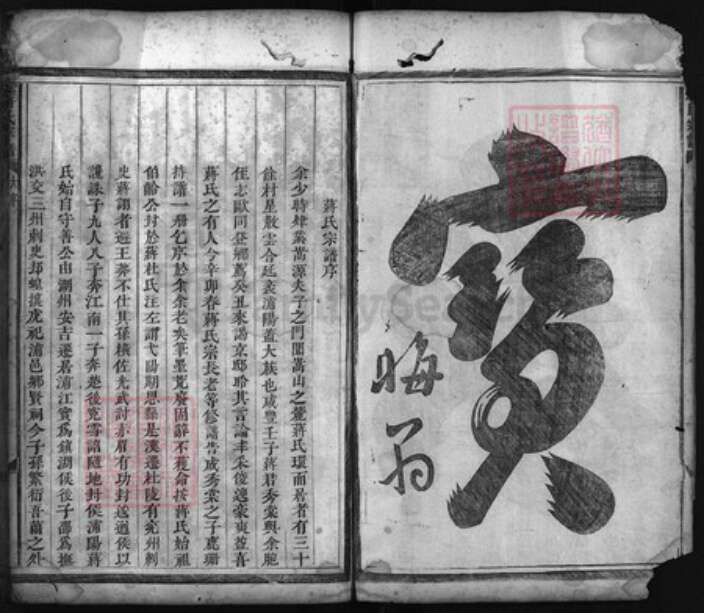 寅
晦翁
蔣氏宗譜序
余少時肄業嵩源夫子之門聞嵩山之麓蔣氏環而居者有三十
餘村星散雲合廷袤浦陽蓋大族也咸豐壬子蔣君秀棠與余胞
侄志歐同登鄉薦癸丑來謁京邸聆其言論丰采俊逸豪爽益喜
蔣氏之有人今辛卯春蔣氏宗長老等修譜告成秀棠之子鹿珊
持譜一冊乞序於余余老矣筆墨荒廢固辭不獲命按蔣氏始祖
伯齡公封於蔣杜氏注左謂弋陽期思縣是漢遷杜陵有兗州刺
史蔣詡者避王莽不仕其孫橫佐光武討赤眉有功封逡遒侯以
讒誅子九人八子奔江南一子奔 後冤雪詔隨地封侯浦陽蔣
氏始自守善公由湖州安吉遷居浦江實為鎮湖侯後子 為撫
洪交三州刺史 蝗 虎祀浦邑鄉賢祠今子孫繁衍吾蕭之外